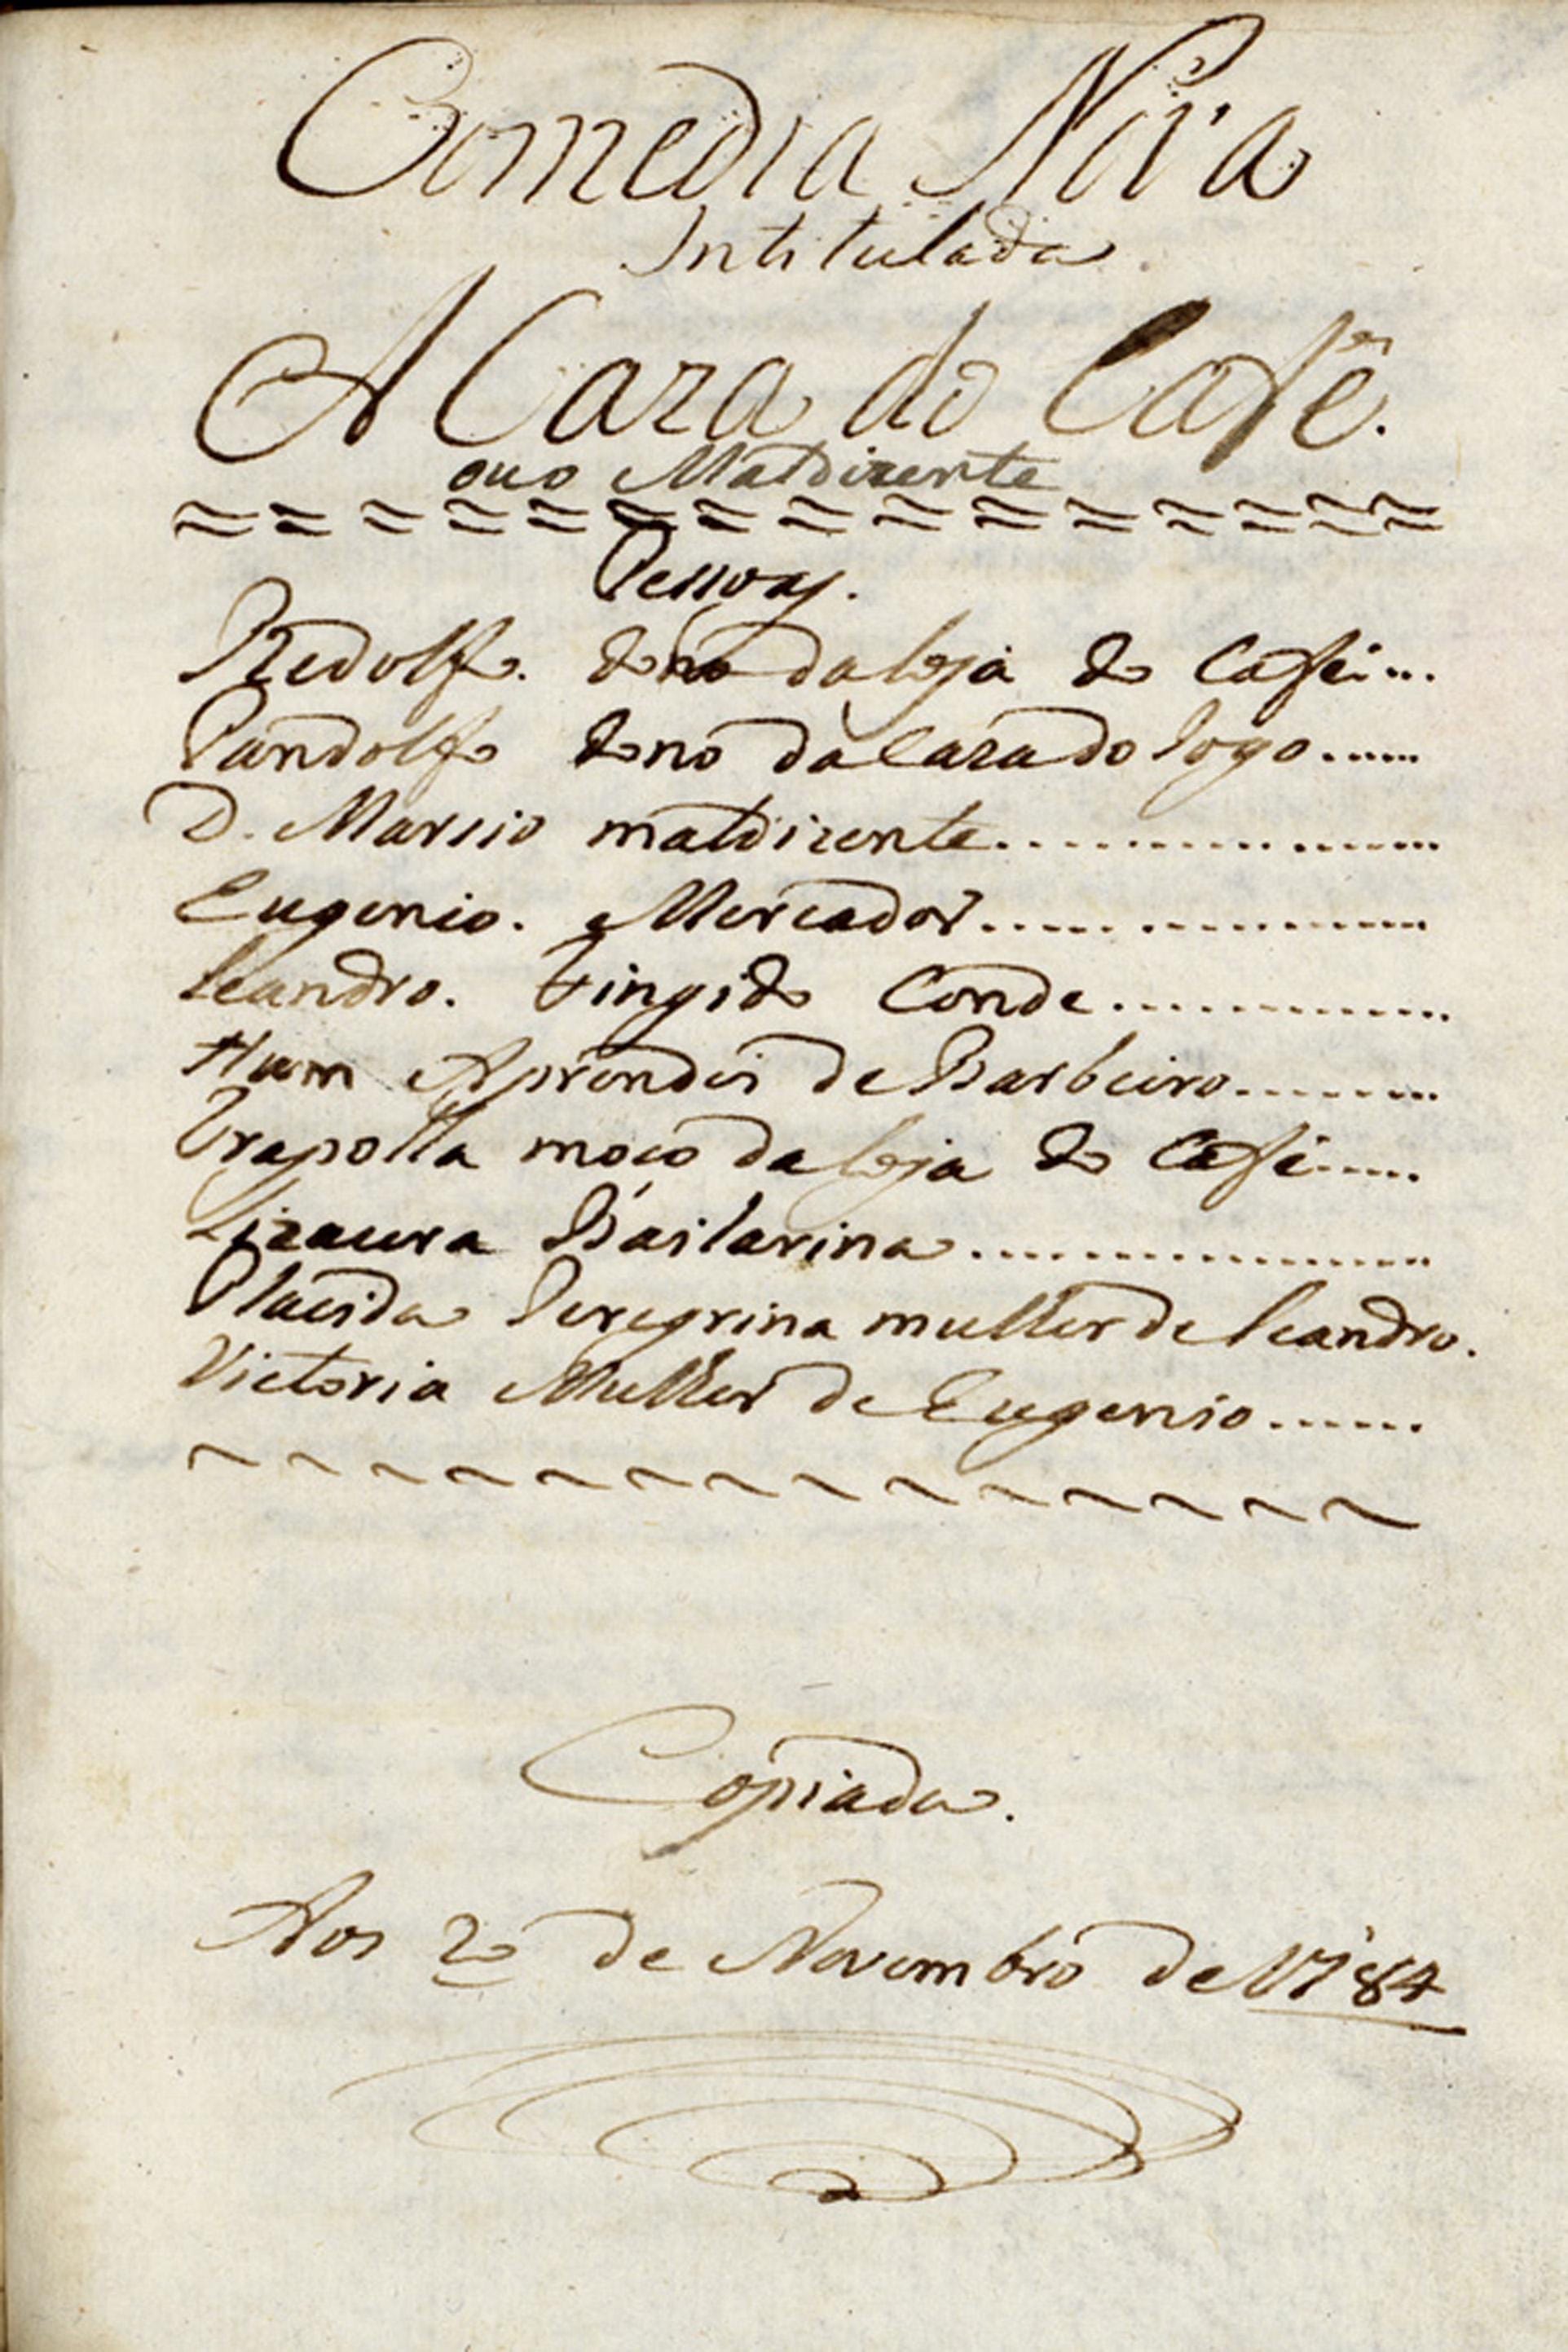 Comedia Nova
Intitulada
A Caza do Café.
ou o Maldizente
Pessoas.
Redolfo. dono da loja do Café...
Pandolfo dono da Caza do Jogo......
D. Marsio maldizente..................
Eugenio. Mercador..................
Leandro. Fingido Conde.............
Hum Aprendis de Barbeiro.........
Trapolla moço da loja do Café.....
Lizaura Bailarina...................
Placida Peregrina mulher de Leandro.
Victoria Mulher de Eugenio......
Copiada.
Aos 2 de Novembro de 1784